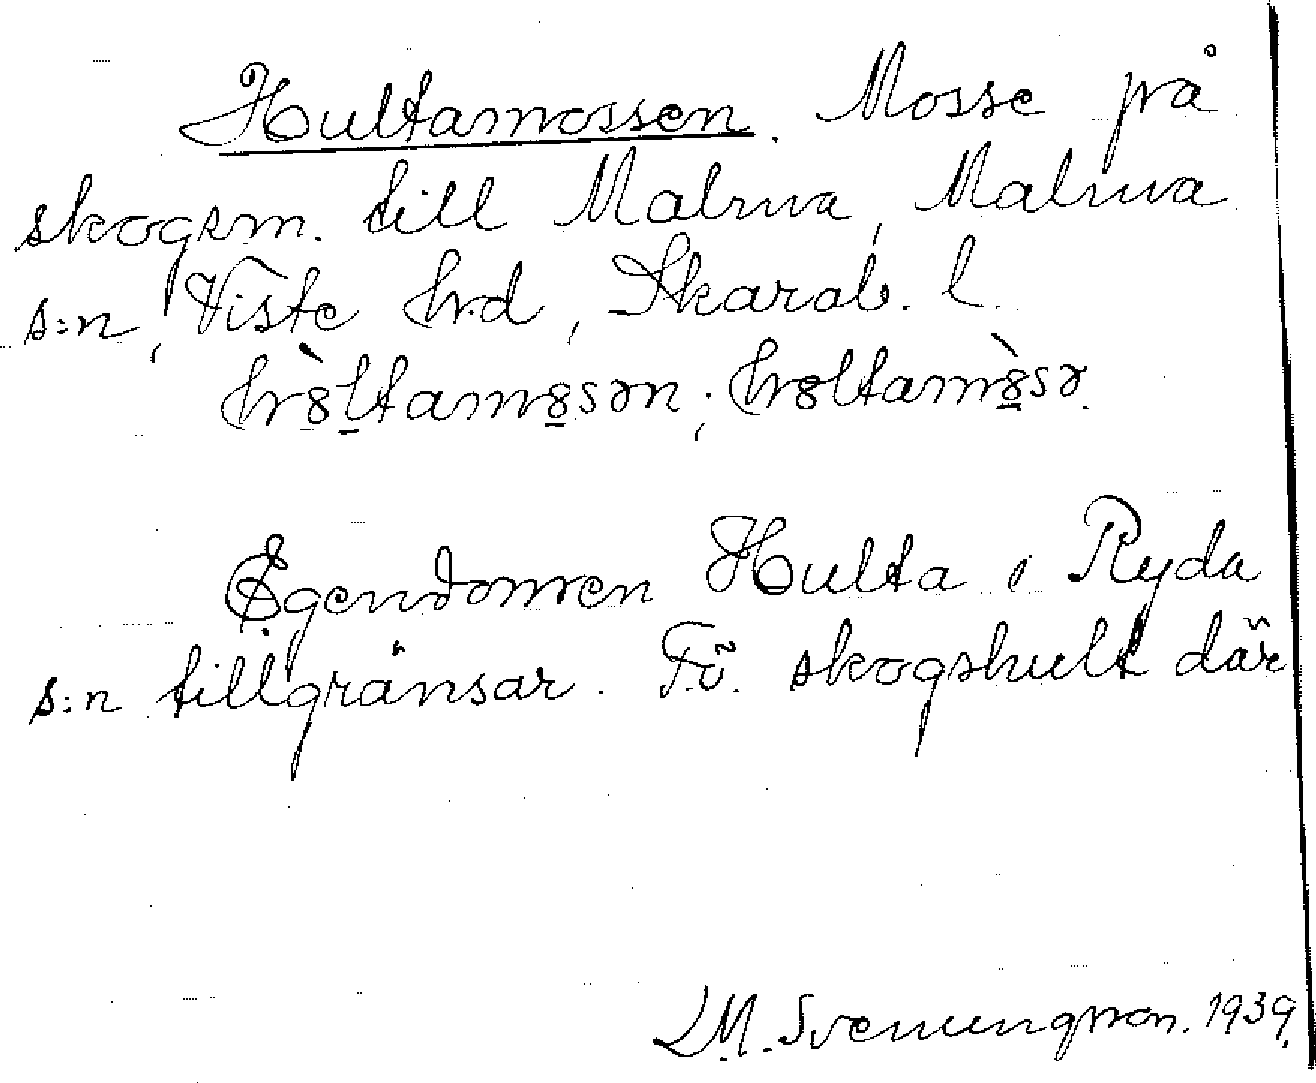 Hultamossen. Mosse på
skogsm. till Malma, Malma
s:n, Viste hrd, Skarab. l.
hò̤ḻtamo̤̱sən; ho̤ltamò̤̱sə.
Egendomen Hulta i Ryda
s:n tillgränsar. Fö. skogshult där
L.M. Svenungsson. 1939.